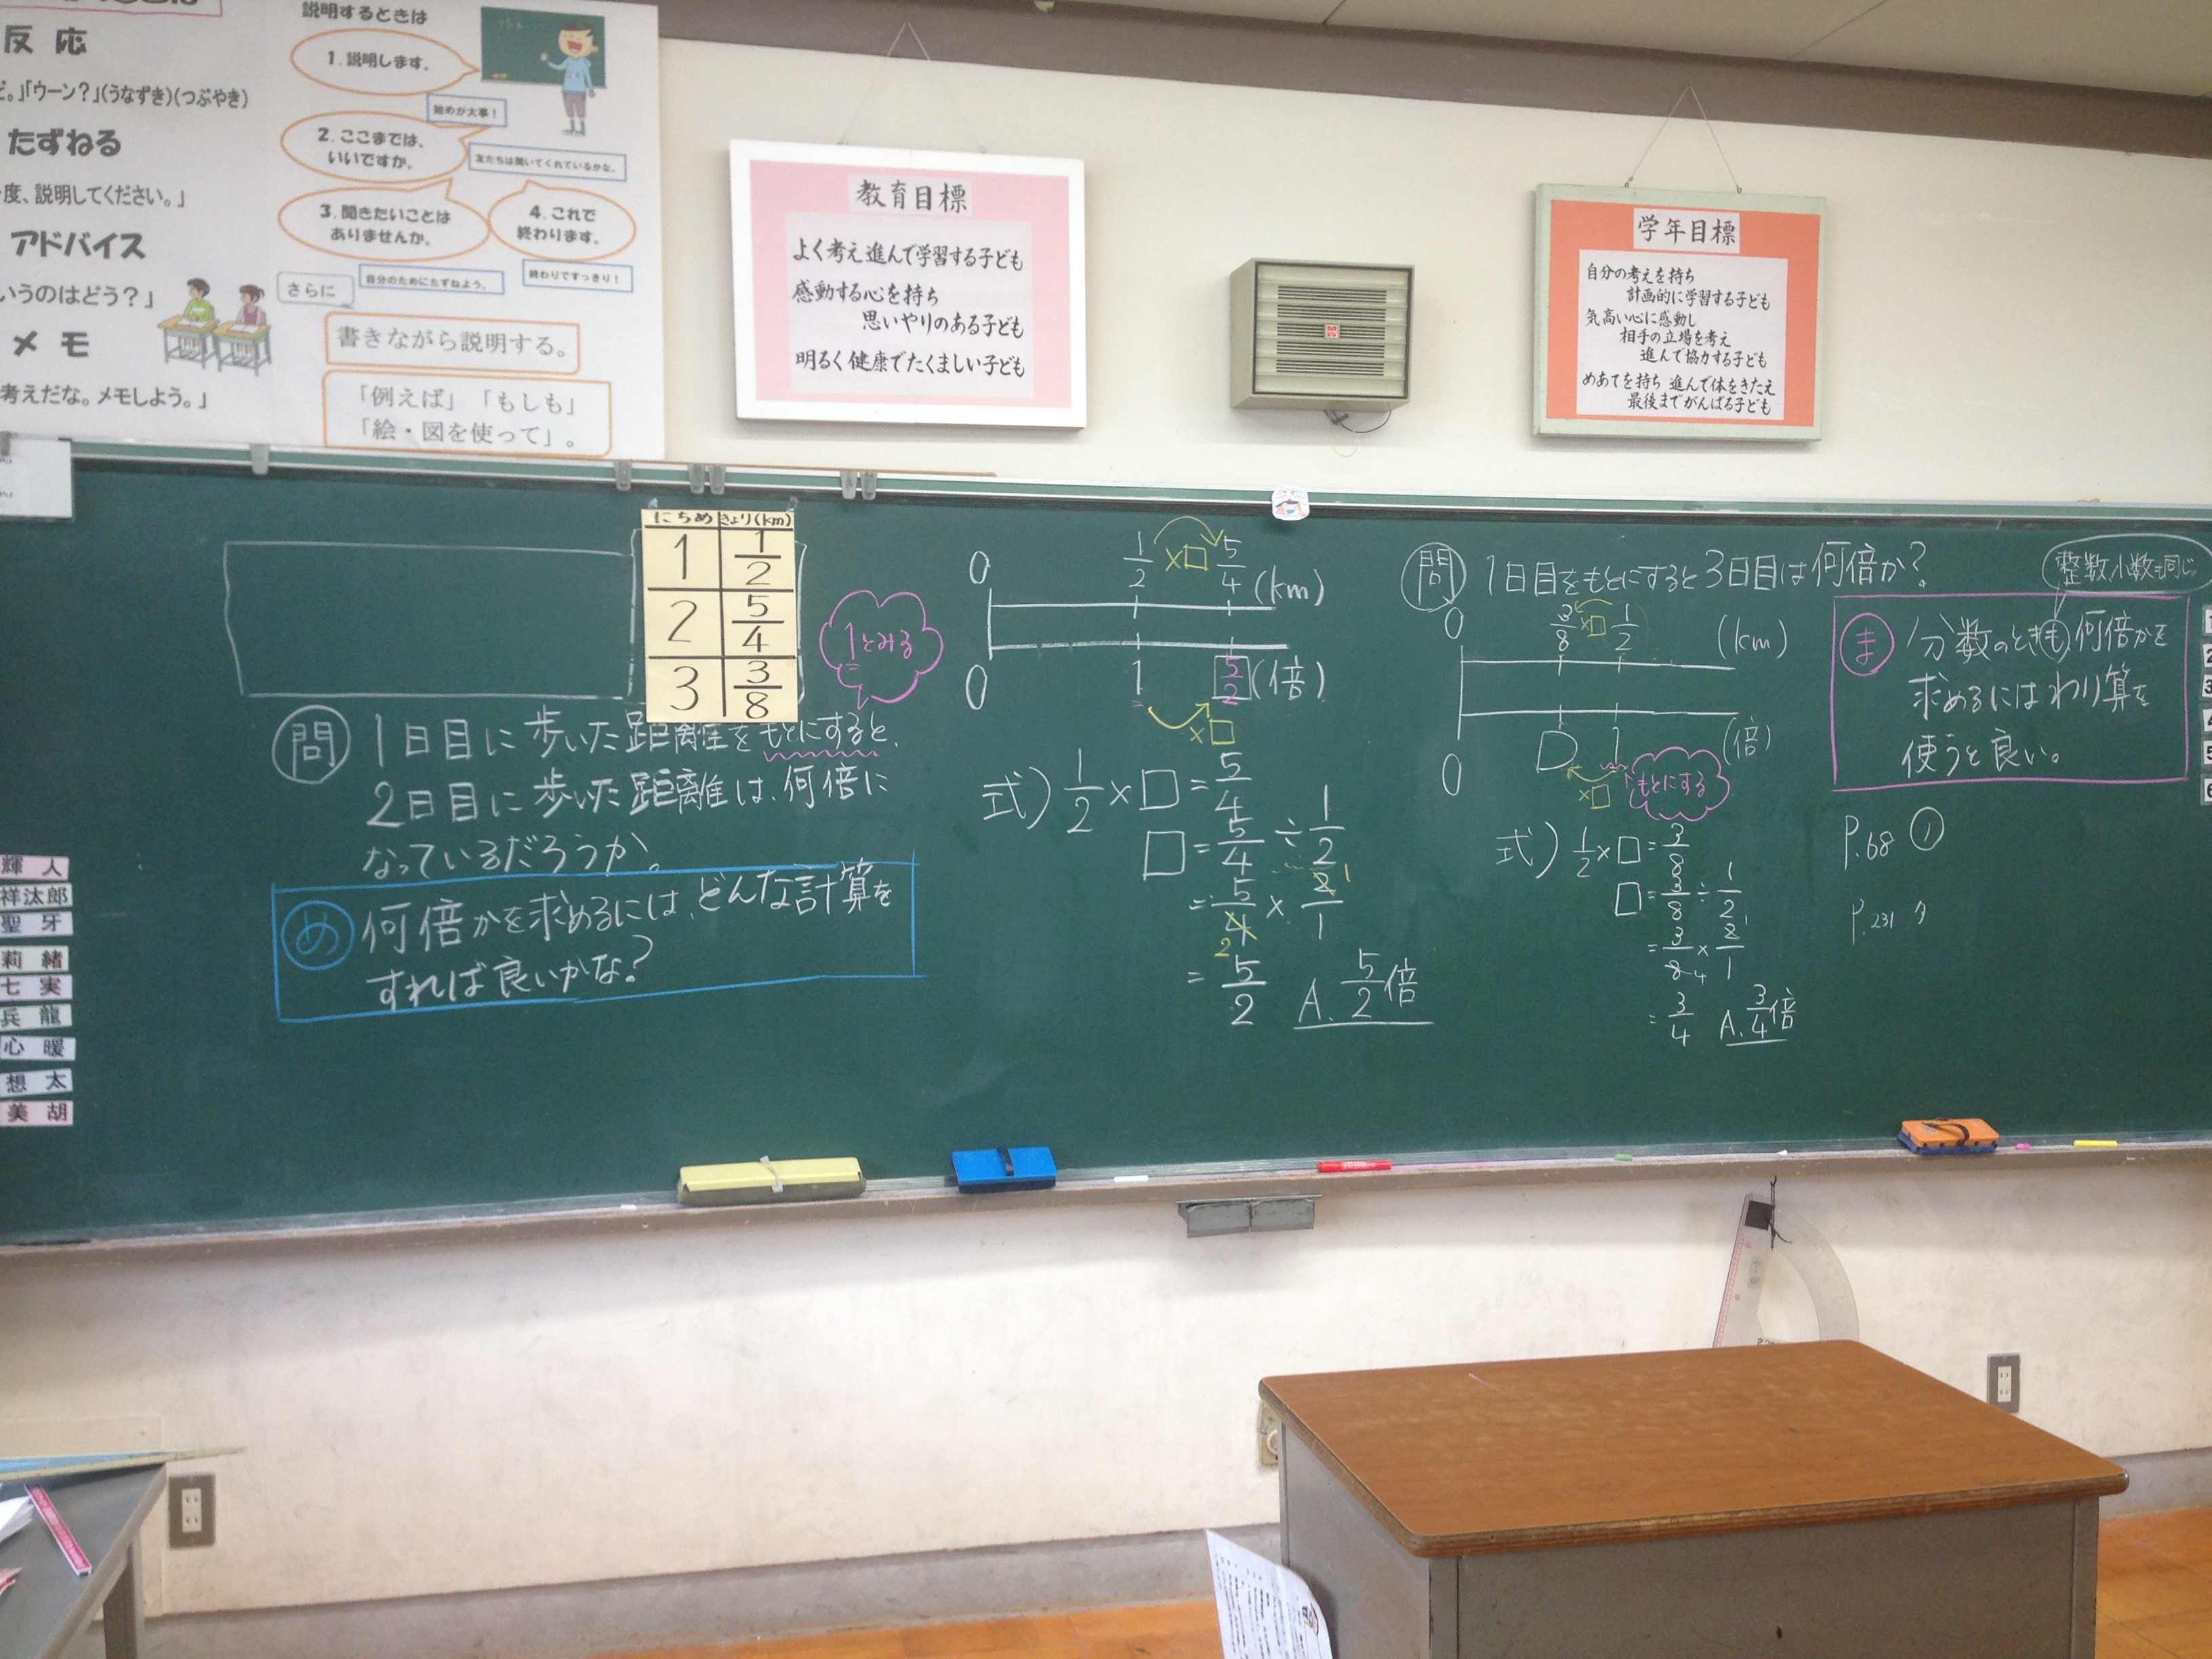 反 応
「ウーン？」(うなずき)(つぶやき)
たずねる
度、説明してください。」
アドバイス
いうのはどう？」
メ モ
考えだな。メモしよう。」
説明するときは
1．説明します。
始めが大事！
2．ここまでは、
いいですか。
友だちは聞いてくれているかな。
3．聞きたいことは
ありませんか。
自分のためにたずねよう。
4．これで
終わります。
終わりですっきり！
さらに
書きながら説明する。
「例えば」「もしも」
「絵・図を使って」。
教育目標
よく考え進んで学習する子ども
感動する心を持ち
思いやりのある子ども
明るく健康でたくましい子ども
学年目標
自分の考えを持ち
計画的に学習する子ども
気高い心に感動し
相手の立場を考え
進んで協力する子ども
めあてを持ち 進んで体をきたえ
最後までがんばる子ども
にちめ きょり(km)
1 1/2
2 5/4
3 3/8
1とみる
問 1日目に歩いた距離をもとにすると、
2日目に歩いた距離は、何倍に
なっているだろうか。
め 何倍かを求めるには、どんな計算を
すれば良いかな？
0 1/2 ×□ 5/4 (km)
0 1 5/2 (倍)
×□
式) 1/2×□=5/4
□=5/4÷1/2
=5/4×2/1
2 1
=5/2 A. 5/2倍
問 1日目をもとにすると3日目は何倍か？
0 3/8 ×□ 1/2 (km)
0 □ 1 (倍)
×□
もとにする
式) 1/2×□=3/8
□=3/8÷1/2
=3/8×2/1
4 1
=3/4 A. 3/4倍
整数,小数も同じ
ま 分数のときも何倍かを
求めるにはわり算を
使うと良い。
P.68 ①
P.231 ク
輝 人
祥汰郎
聖 牙
莉 緒
七 実
兵 龍
心 暖
想 太
美 胡